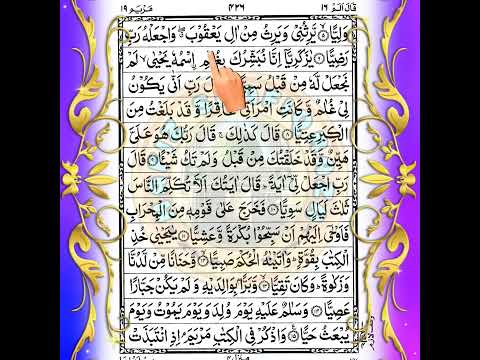 قال الم ١٦ ٤٢٦ مريم ١٩
وَلِيًّا ۙ يَّرِثُنِىْ وَيَرِثُ مِنْ اٰلِ يَعْقُوْبَ ۖ وَاجْعَلْهُ رَبِّ
رَضِيًّا يٰزَكَرِيَّآ اِنَّا نُبَشِّرُكَ بِغُلٰمِ اسْمُهٗ يَحْيٰى ۙ لَمْ
نَجْعَلْ لَّهٗ مِنْ قَبْلُ سَمِيًّا قَالَ رَبِّ اَنّٰى يَكُوْنُ
لِىْ غُلٰمٌ وَّكَانَتِ امْرَاَتِىْ عَاقِرًا وَّ قَدْ بَلَغْتُ مِنَ
الْكِبَرِ عِتِيًّا قَالَ كَذٰلِكَ ۚ قَالَ رَبُّكَ هُوَ عَلَىَّ
هَيِّنٌ وَّ قَدْ خَلَقْتُكَ مِنْ قَبْلُ وَلَمْ تَكُ شَيْئًا قَالَ
رَبِّ اجْعَلْ لِّىْٓ اٰيَةً ؕ قَالَ اٰيَتُكَ اَلَّا تُكَلِّمَ النَّاسَ
ثَلٰثَ لَيَالٍ سَوِيًّا فَخَرَجَ عَلٰى قَوْمِهٖ مِنَ الْمِحْرَابِ
فَاَوْحٰٓى اِلَيْهِمْ اَنْ سَبِّحُوْا بُكْرَةً وَّعَشِيًّا يٰيَحْيٰى خُذِ
الْكِتٰبَ بِقُوَّةٍ ؕ وَاٰتَيْنٰهُ الْحُكْمَ صَبِيًّا ۙ وَّحَنَانًا مِّنْ لَّدُنَّا
وَزَكٰوةً ؕ وَكَانَ تَقِيًّا ۙ وَّبَرًّۢا بِوَالِدَيْهِ وَلَمْ يَكُنْ جَبَّارًا
عَصِيًّا وَسَلٰمٌ عَلَيْهِ يَوْمَ وُلِدَ وَيَوْمَ يَمُوْتُ وَيَوْمَ
يُبْعَثُ حَيًّا وَاذْكُرْ فِى الْكِتٰبِ مَرْيَمَ ۘ اِذِ انْتَبَذَتْ